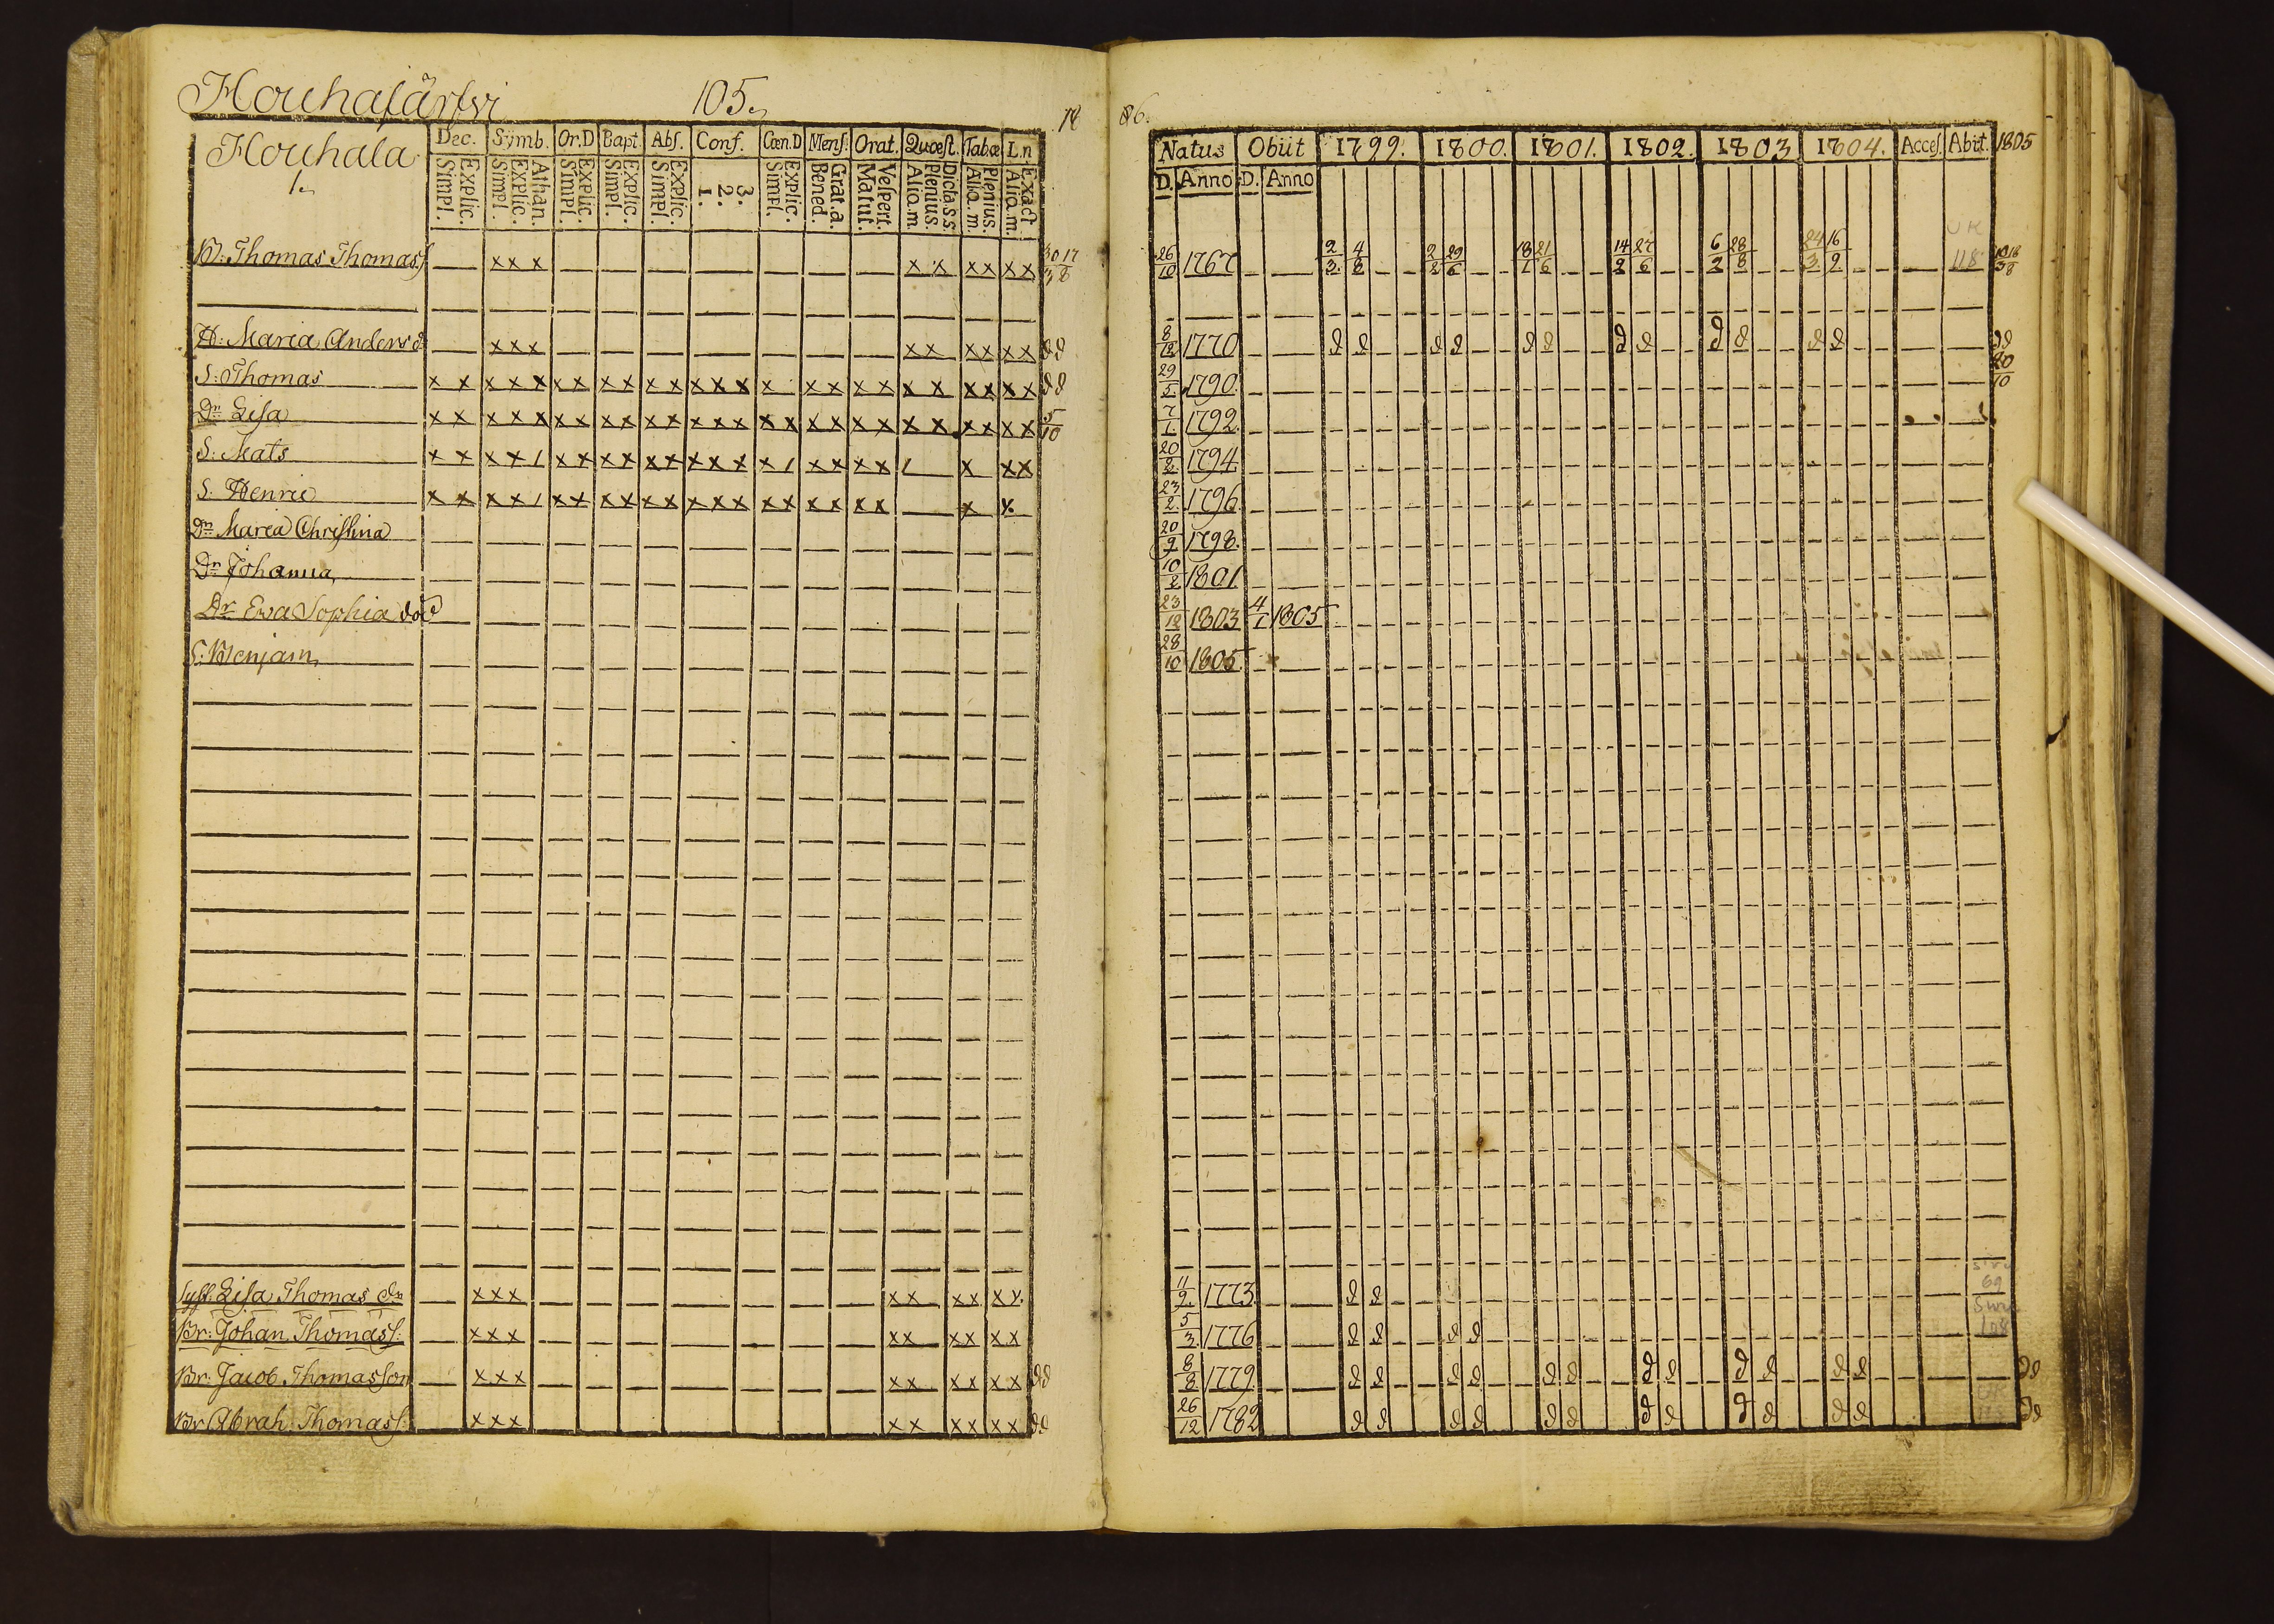 Houhajärfvi 105.
Houhala
1.
Dec. Symb. Or.D Bapt. Abs. Conf. Cœn.D Mens. Orat. Quæst. Tabæ L.n
Explic. Simpl. Athan. Explic. Simpl. Explic. Simpl. Explic. Simpl. Explic. Simpl. 3. 2. 1. Explic. Simpl. Grat.a. Bened. Vespert. Matut. Dicta S.S. Plenius. Alio.m. Plenius. Alia.m. Exact Alia.m.
B: Thomas Thomass. x x x x x x x x x 30/3 17/6
H: Maria Andersd. x x x x x x x x x d d
S: Thomas x x x x x x x x x x x x x x x x x x x x x x x x x d d
Dr: Lisa x x x x x x x x x x x x x x x x x x x x x x x x x x 5/10
S: Mats x x x x / x x x x x x x x x x / x x x x / x x x
S: Henric x x x x / x x x x x x x x x x x x x x x x x
Dr: Maria Christina
Dr: Johanna
Dr: Eva Sophia död
S: Benjam.
Syst: Lisa Thomas dr x x x x x x x x x
Br: Johan Thomass: x x x x x x x x x
Br: Jacob Thomasson x x x x x x x x x d d
Br Abrah: Thomass: x x x x x x x x x d d
86.
Natus Obiit 1799. 1800. 1801. 1802. 1803 1804. Acces. Abit. 1805
D. Anno D. Anno
26/10 1767 2/3 4/8 2/2 29/6 18/1 21/6 14/2 27/6 6/2 28/8 24/3 16/9 118 10/3 18/8
8/12 1770 d d d d d d d d d d d d d d
29/5 1790. 20/10
7/1 1792
20/2 1794
23/2 1796
20/9 1798
10/2 1801
23/12 1803 4/1 1805
28/10 1805
11/9 1773 d d 69
5/3 1776 d d d d 108
8/8 1779 d d d d d d d d d d d d d d
26/12 1782 d d d d d d d d d d d d d d